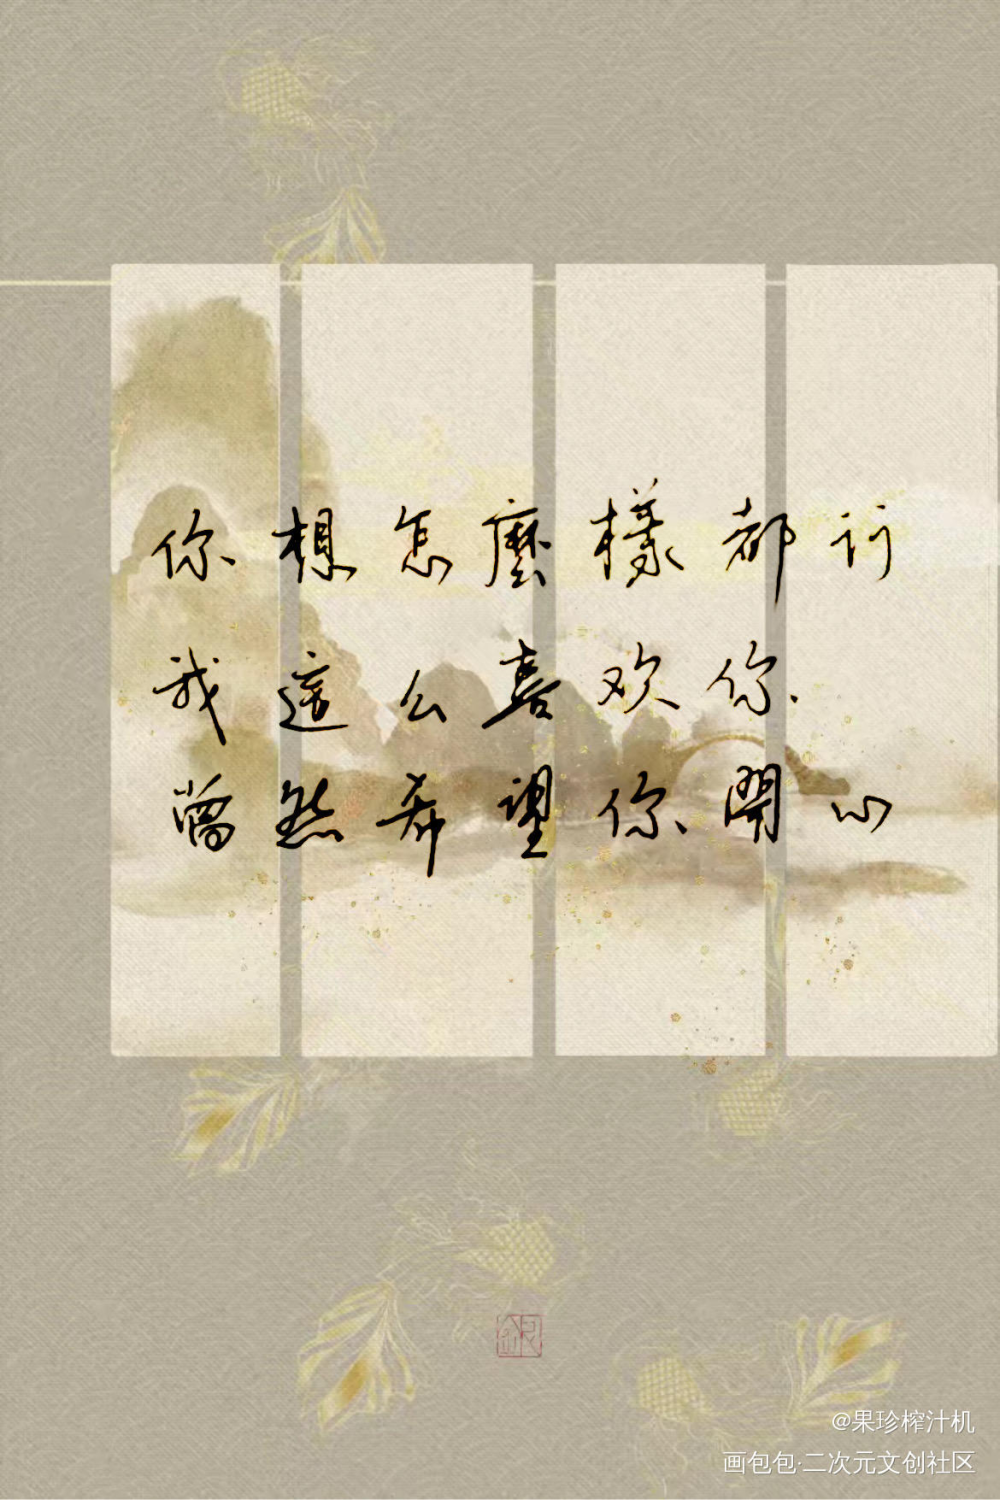 你想怎麼樣都行
我這么喜欢你.
當然希望你開心
@果珍榨汁机
画包包·二次元文创社区